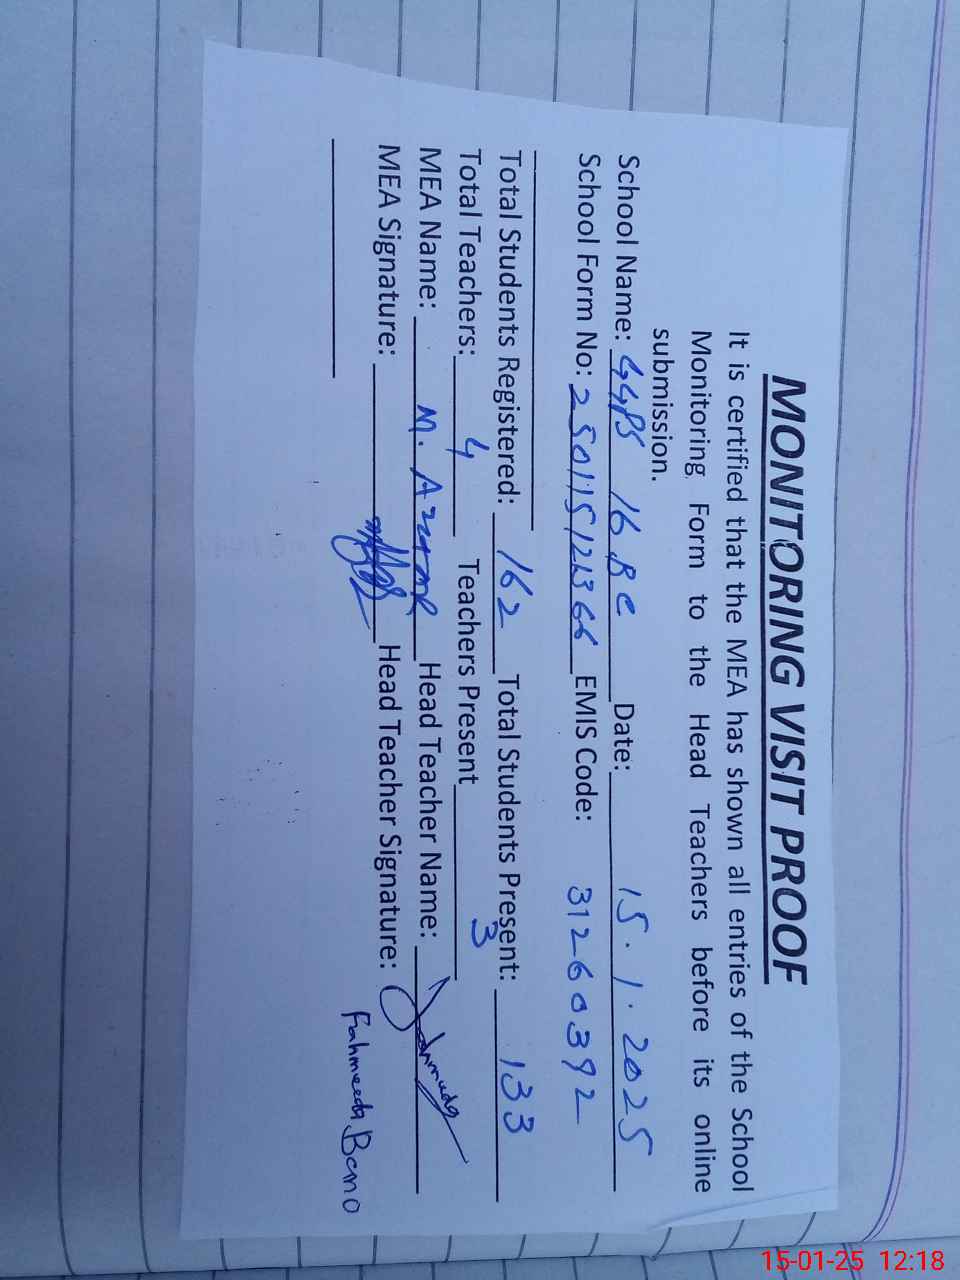 MONITORING VISIT PROOF
It is certified that the MEA has shown all entries of the School
Monitoring Form to the Head Teachers before its online
submission.
School Name: GGPS 16 BC Date: 15.1.2025
School Form No: 250115121366 EMIS Code: 31260392
Total Students Registered: 162 Total Students Present: 133
Total Teachers: 4 Teachers Present 3
MEA Name: M. Azeem Head Teacher Name:
MEA Signature: Head Teacher Signature:
Fahmeeda Bano
15-01-25 12:18